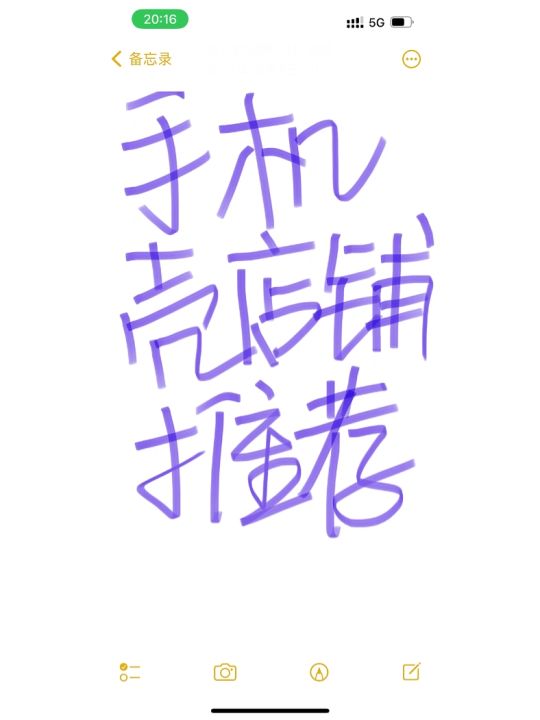 20:16
5G
备忘录
手机
壳店铺
推荐